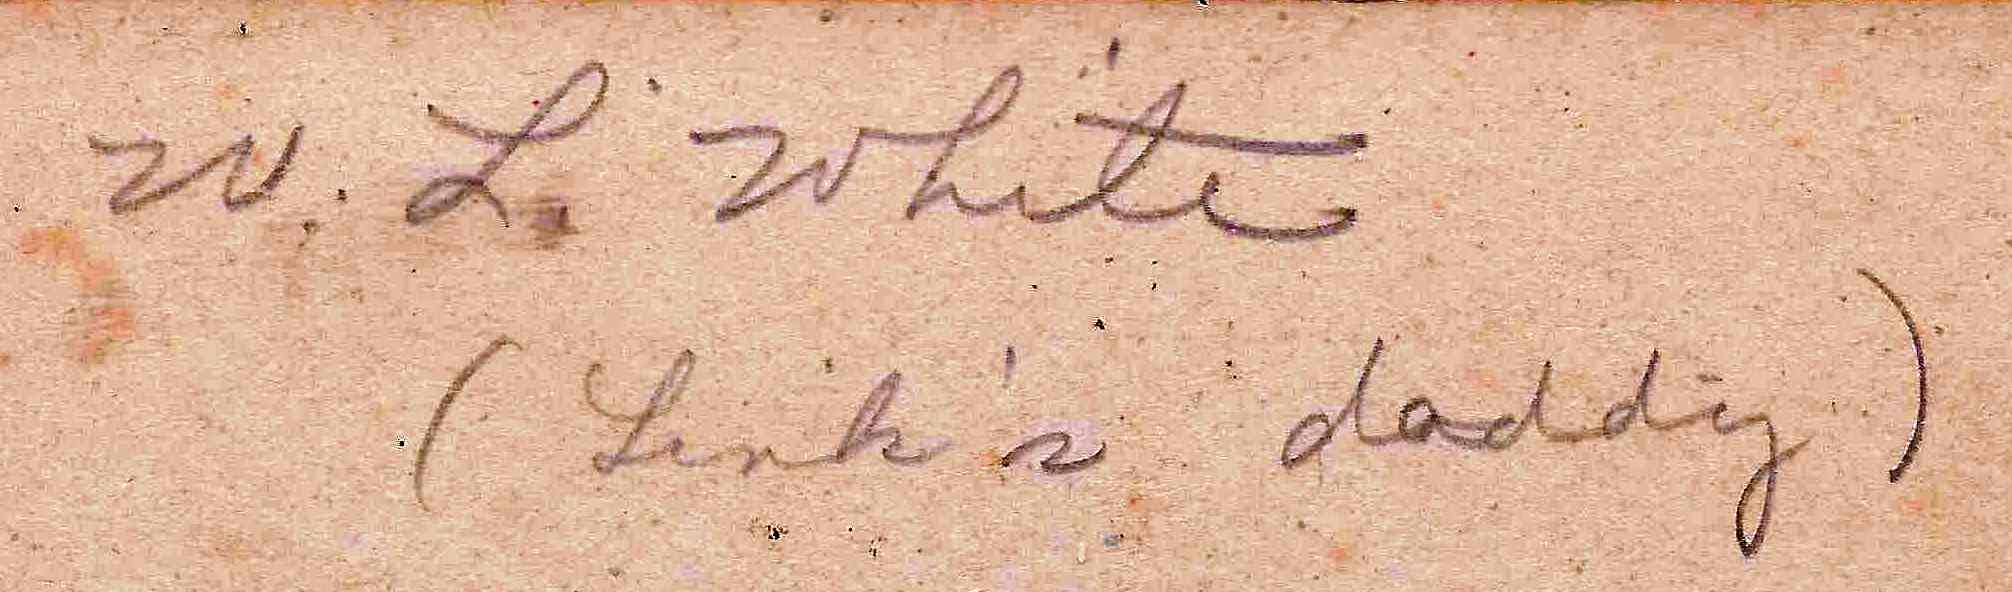 W. L. White
(Link's daddy)